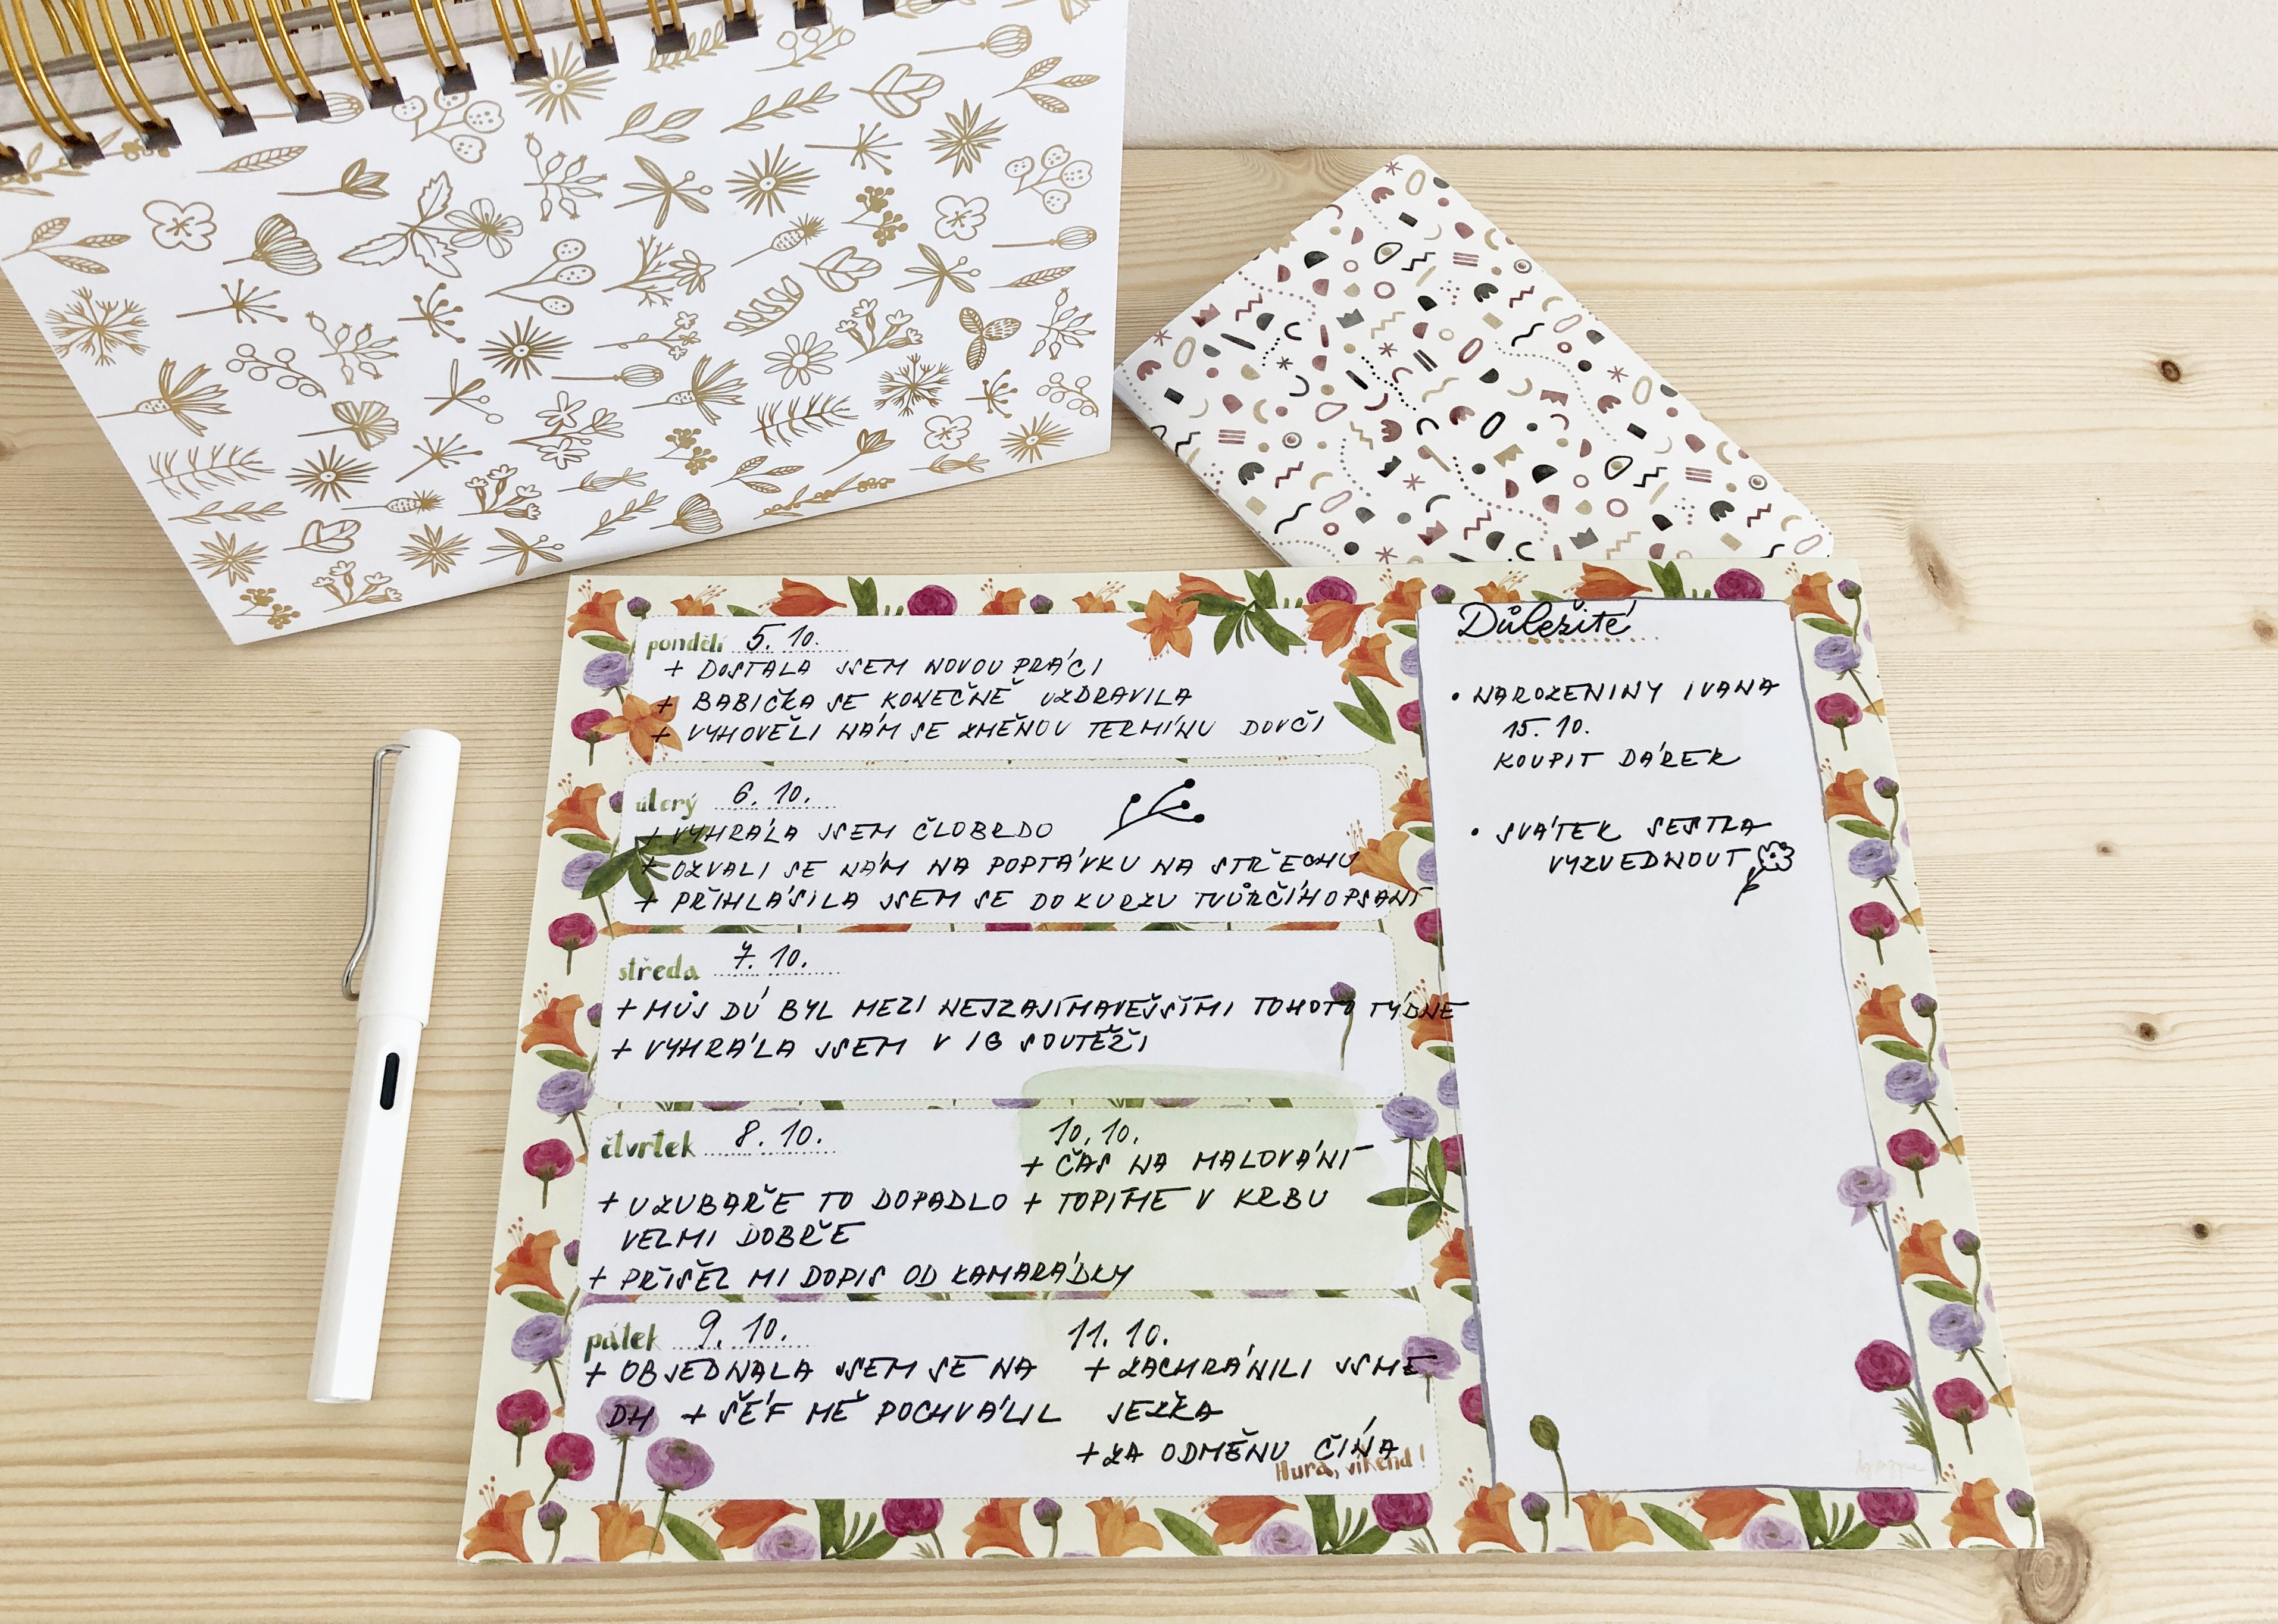 pondělí 5. 10.
+ DOSTALA JSEM NOVOU PRÁCI
+ BABIČKA SE KONEČNĚ UZDRAVILA
+ VYHOVĚLI NÁM SE ZMĚNOU TERMÍNU DOVČI
úterý 6. 10.
+ VYHRÁLA JSEM ČLOBRDO
+ OZVALI SE NÁM NA POPTÁVKU NA STŘECHU
+ PŘIHLÁSILA JSEM SE DO KURZU TVŮRČÍHO PSANÍ
středa 7. 10.
+ MŮJ DÚ BYL MEZI NEJZAJÍMAVĚJŠÍMI TOHOTO TÝDNE
+ VYHRÁLA JSEM V IG SOUTĚŽI
čtvrtek 8. 10.
+ U ZUBAŘE TO DOPADLO
VELMI DOBŘE
+ PŘIŠEL MI DOPIS OD KAMARÁDKY
10. 10.
+ ČAS NA MALOVÁNÍ
+ TOPÍME V KRBU
pátek 9. 10.
+ OBJEDNALA JSEM SE NA
DH + ŠÉF MĚ POCHVÁLIL
11. 10.
+ ZACHRÁNILI JSME
JEŽKA
+ ZA ODMĚNU ČÍNA
Hurá, víkend!
Důležité
• NAROZENINY IVANA
15. 10.
KOUPIT DÁREK
• SVÁTEK SESTRA
VYZVEDNOUT